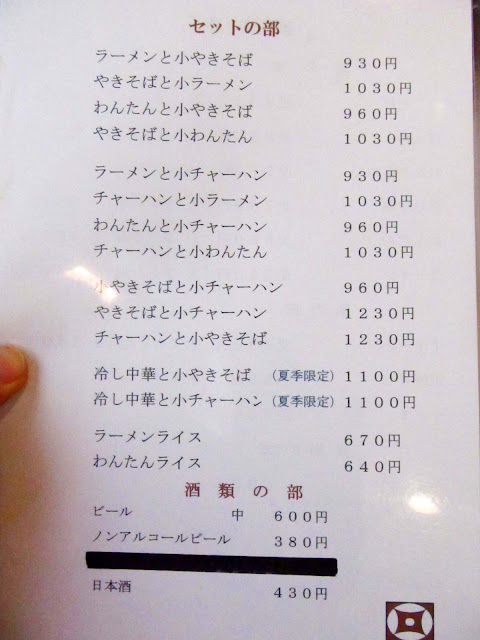 セットの部
ラーメンと小やきそば 930円
やきそばと小ラーメン 1030円
わんたんと小やきそば 960円
やきそばと小わんたん 1030円
ラーメンと小チャーハン 930円
チャーハンと小ラーメン 1030円
わんたんと小チャーハン 960円
チャーハンと小わんたん 1030円
小やきそばと小チャーハン 960円
やきそばと小チャーハン 1230円
チャーハンと小やきそば 1230円
冷し中華と小やきそば (夏季限定) 1100円
冷し中華と小チャーハン (夏季限定) 1100円
ラーメンライス 670円
わんたんライス 640円
酒類の部
ビール 中 600円
ノンアルコールビール 380円
日本酒 430円